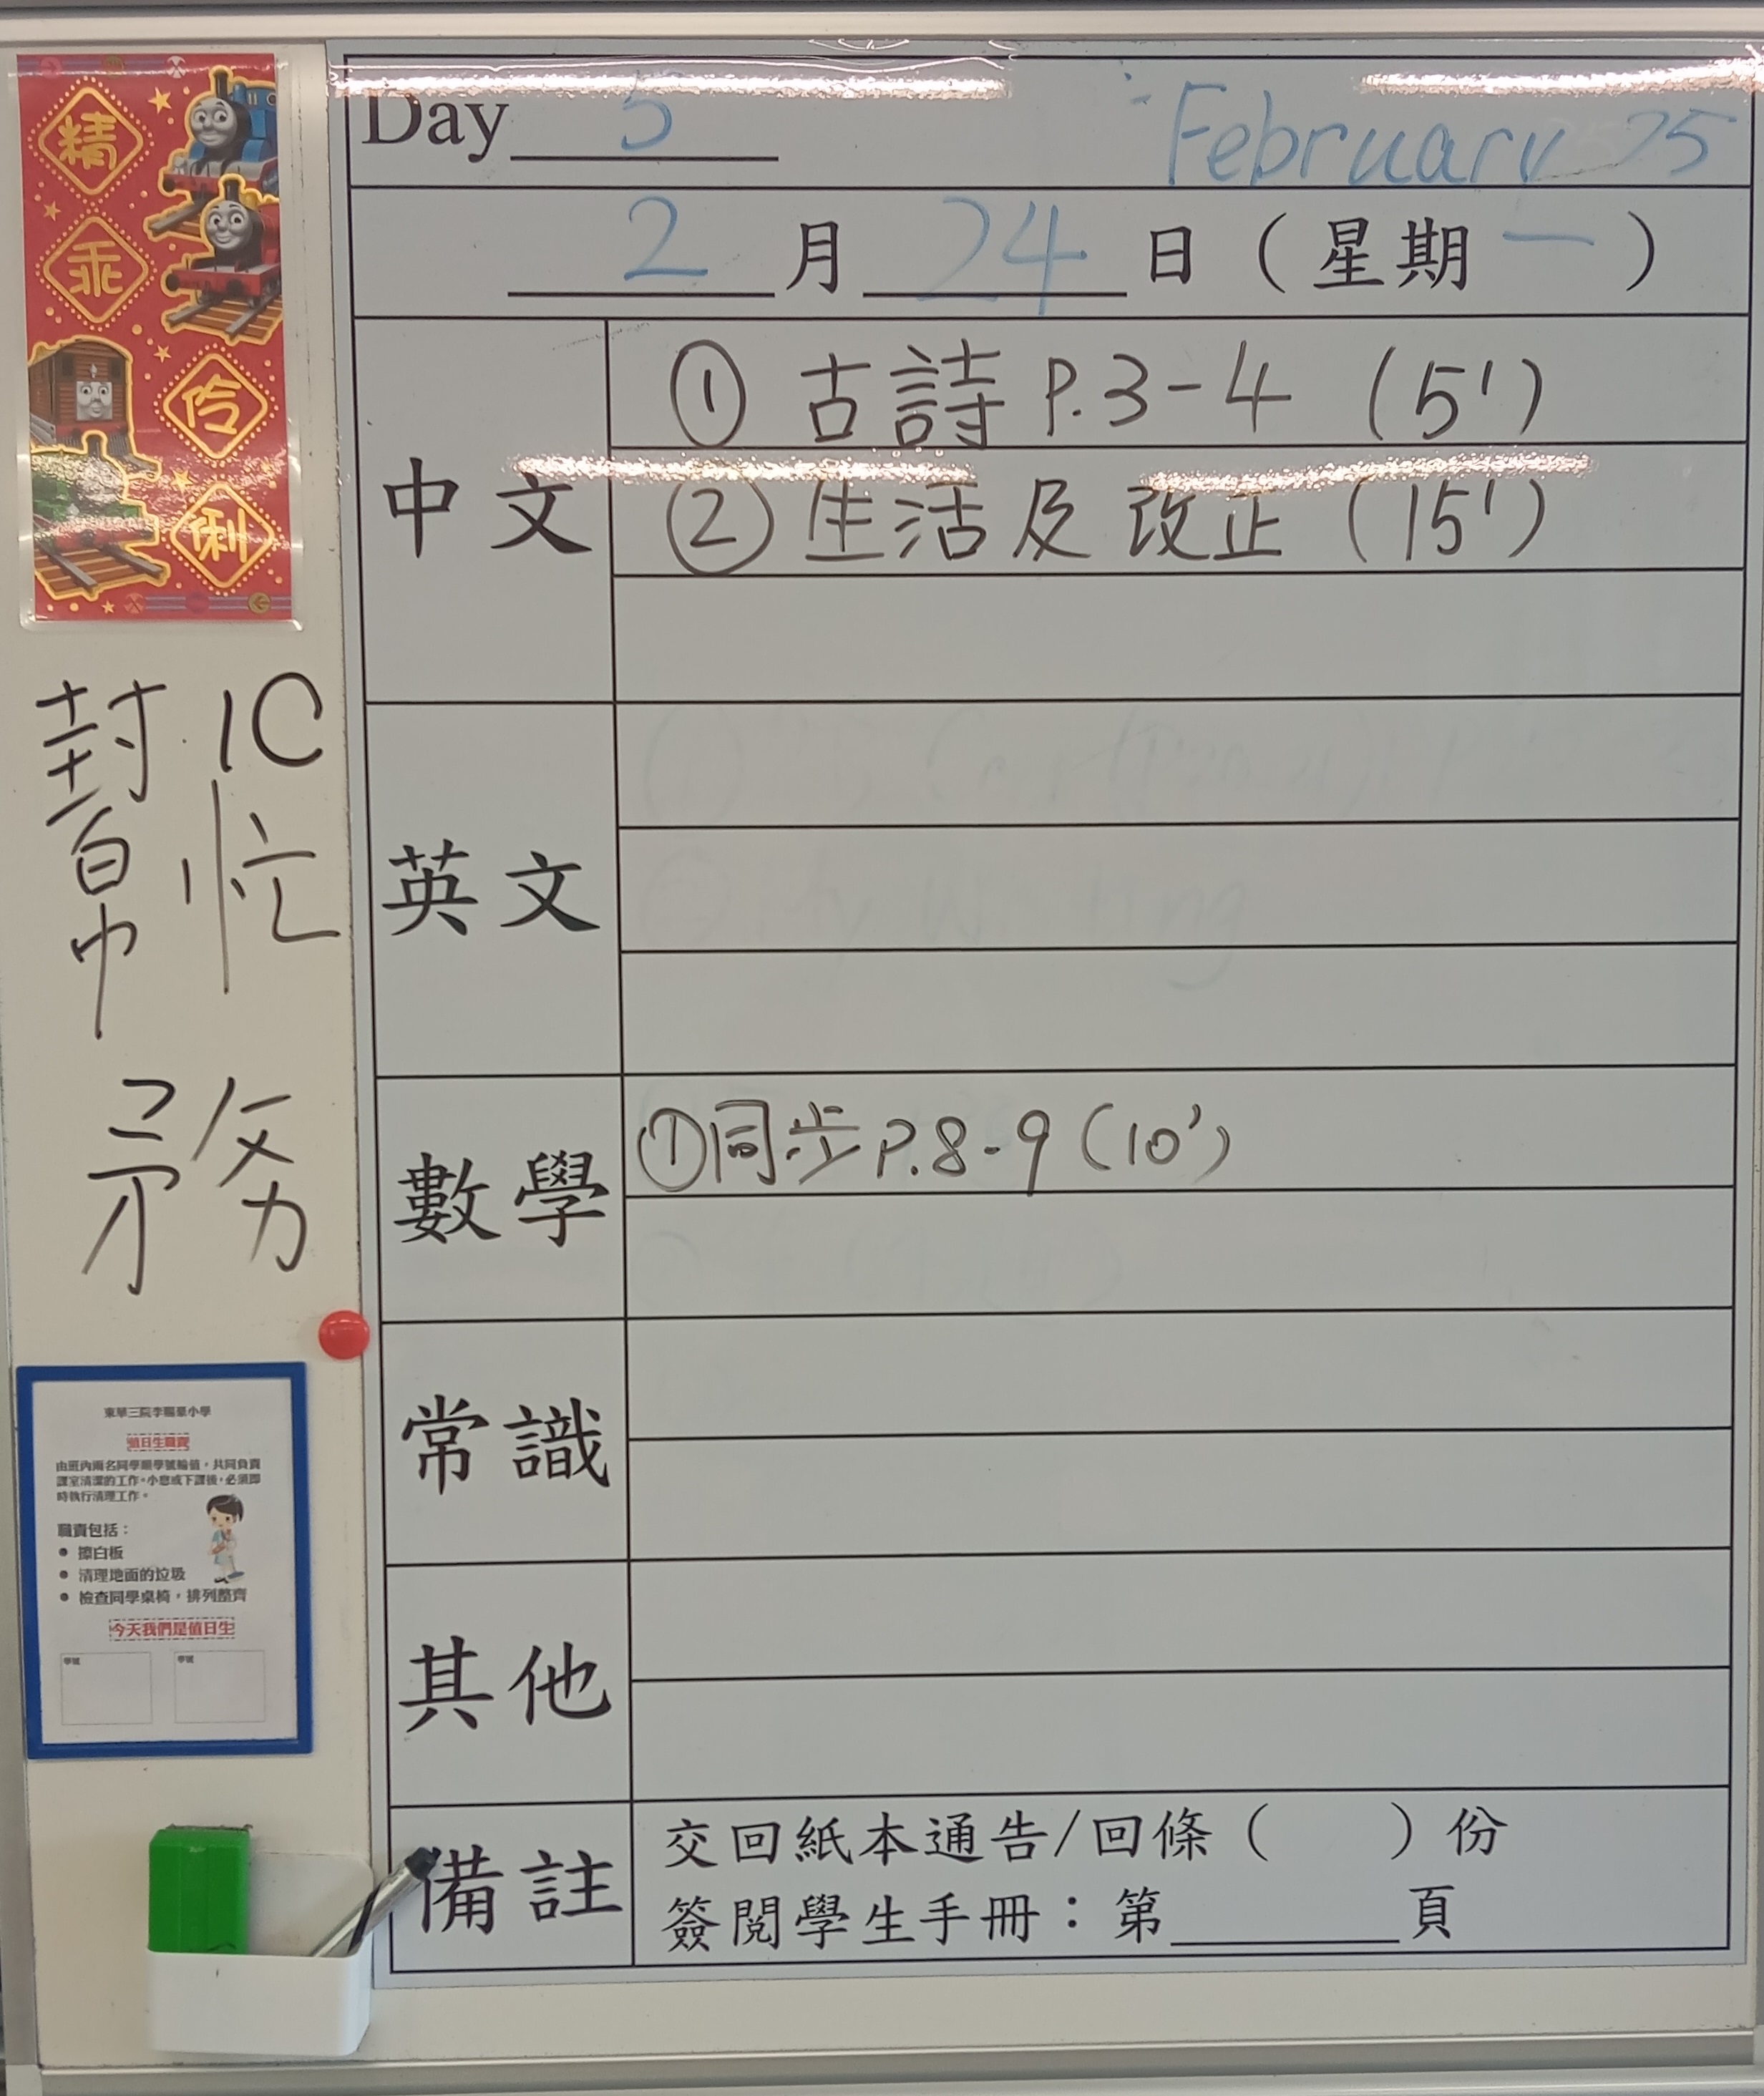 精
乖
伶
俐
Day 5
February 25
2 月 24 日 ( 星期 一 )
中文
① 古詩 P.3-4 (5')
② 生活及改正 (15')
英文
數學
① 同步 P.8-9 (10')
常識
其他
備註
交回紙本通告/回條 ( ) 份
簽閱學生手冊：第______頁
1C
幫忙
務
東華三院李賜豪小學
值日生職責
由班內兩名同學順學號輪值，共同負責
課室清潔的工作。小息或下課後，必須即
時執行清理工作。
職責包括：
• 擦白板
• 清理地面的垃圾
• 檢查同學桌椅，排列整齊
今天我們是值日生
學號 學號